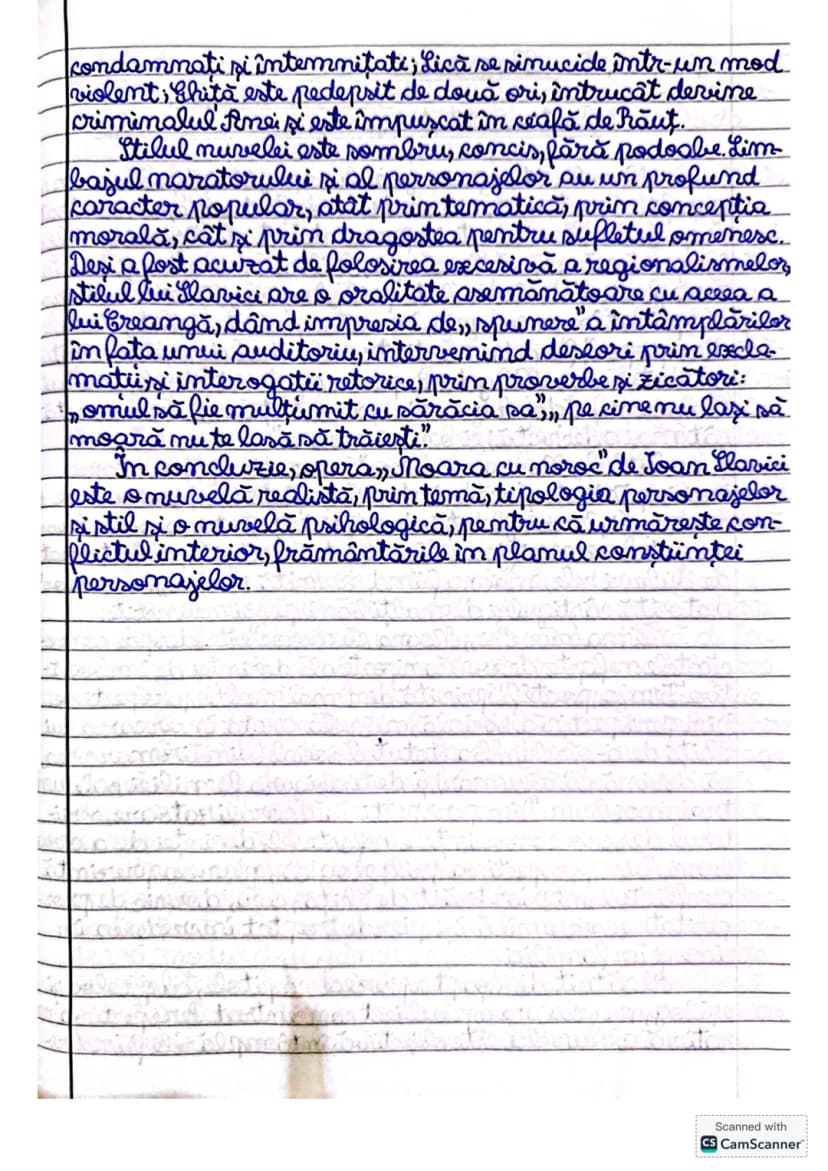 condamnați și întemnițați; Lică se sinucide într-un mod
violent; Ghiță este pedepsit de două ori, întrucât devine
criminalul Anei și este împușcat în ceafă de Răuț.
Stilul nuvelei este sombru, concis, fără podoabe. Lim-
bajul naratorului și al personajelor au un profund
caracter popular, atât prin tematică, prin concepția
morală, cât și prin dragostea pentru sufletul omenesc.
Deși a fost acuzat de folosirea excesivă a regionalismelor,
stilul lui Slavici are o oralitate asemănătoare cu aceea a
lui Creangă, dând impresia de „spunere” a întâmplărilor
în fața unui auditoriu, intervenind deseori prin excla-
mații și interogații retorice, prin proverbe și zicători:
„omul să fie mulțumit cu sărăcia sa”, „pe cine nu lași să
moară nu te lasă să trăiești.”
În concluzie, opera „Moara cu noroc” de Ioan Slavici
este o nuvelă realistă, prin temă, tipologia personajelor
și stil și o nuvelă psihologică, pentru că urmărește con-
flictul interior, frământările în planul conștiinței
personajelor.
Scanned with
CS CamScanner